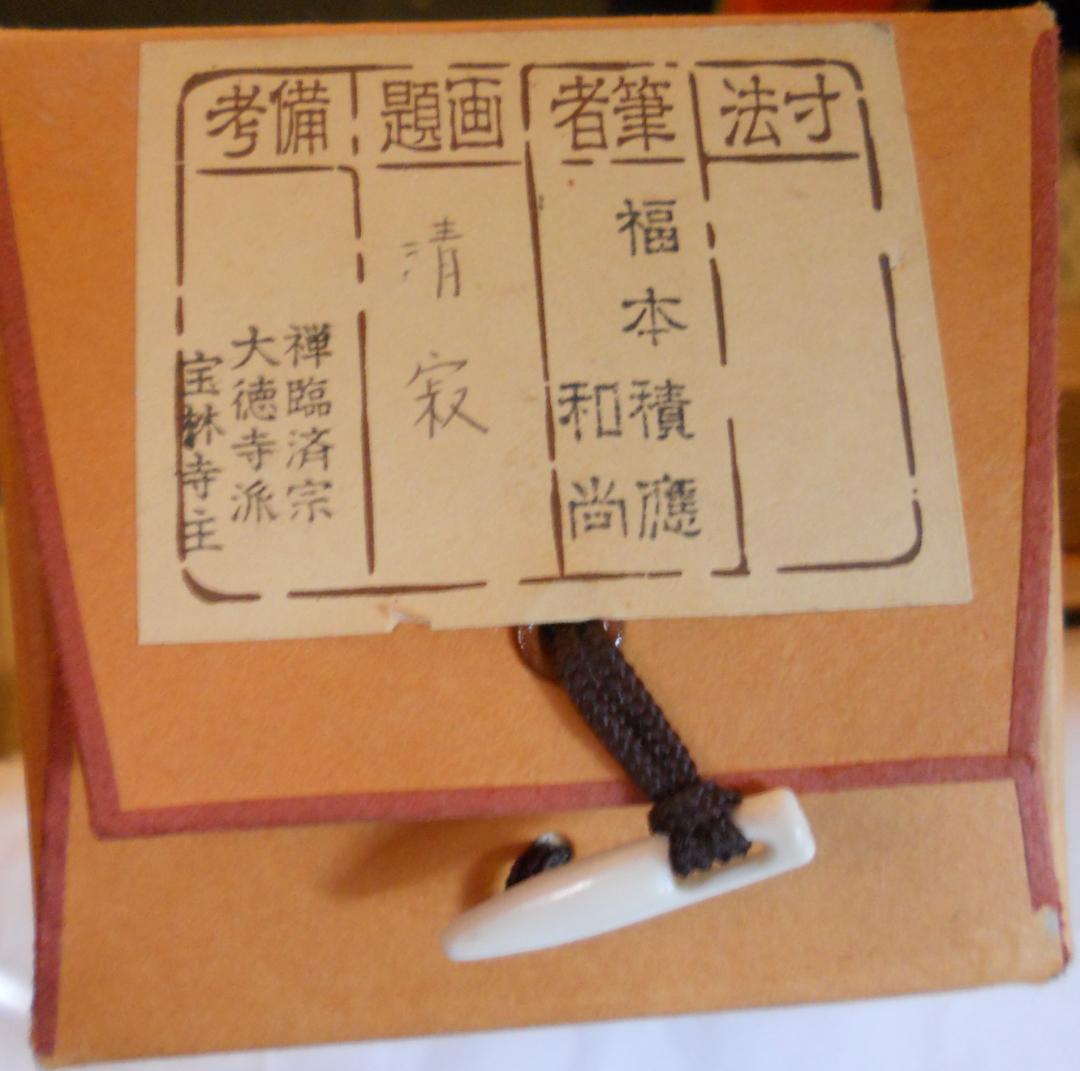 寸法
筆者
福本
積應
和尚
画題
清寂
備考
禅臨済宗
大徳寺派
宝林寺主